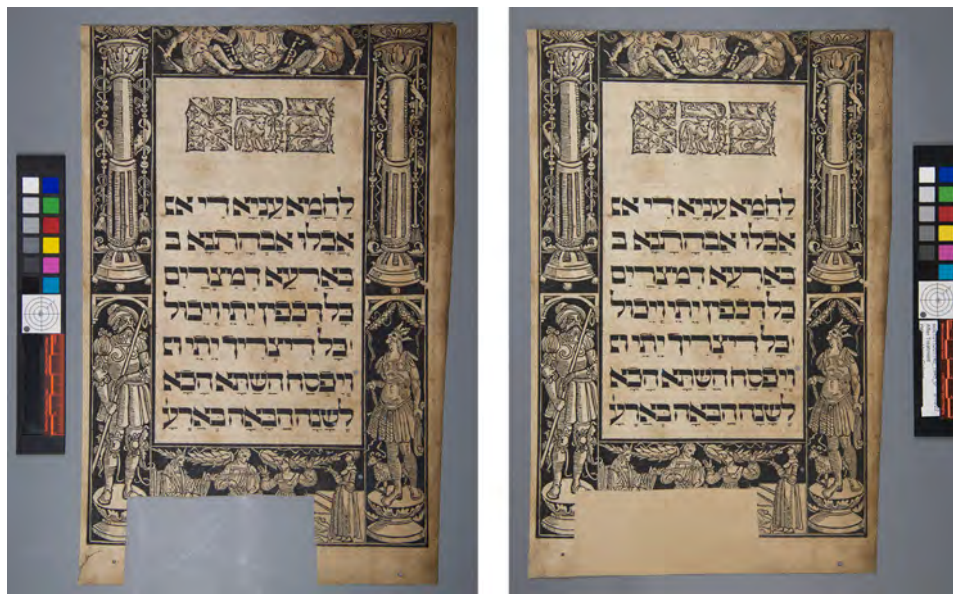 כהא
לחמא עניא די אכ
אכלו אבהתנא ב
בארעא דמצרים
כל דכפין ייתי וייכול
וכל דיצריך ייתי וי
וייפסח השתא הכא
לשנה הבאה בארע
כהא
לחמא עניא די אכ
אכלו אבהתנא ב
בארעא דמצרים
כל דכפין ייתי וייכול
וכל דיצריך ייתי וי
וייפסח השתא הכא
לשנה הבאה בארע